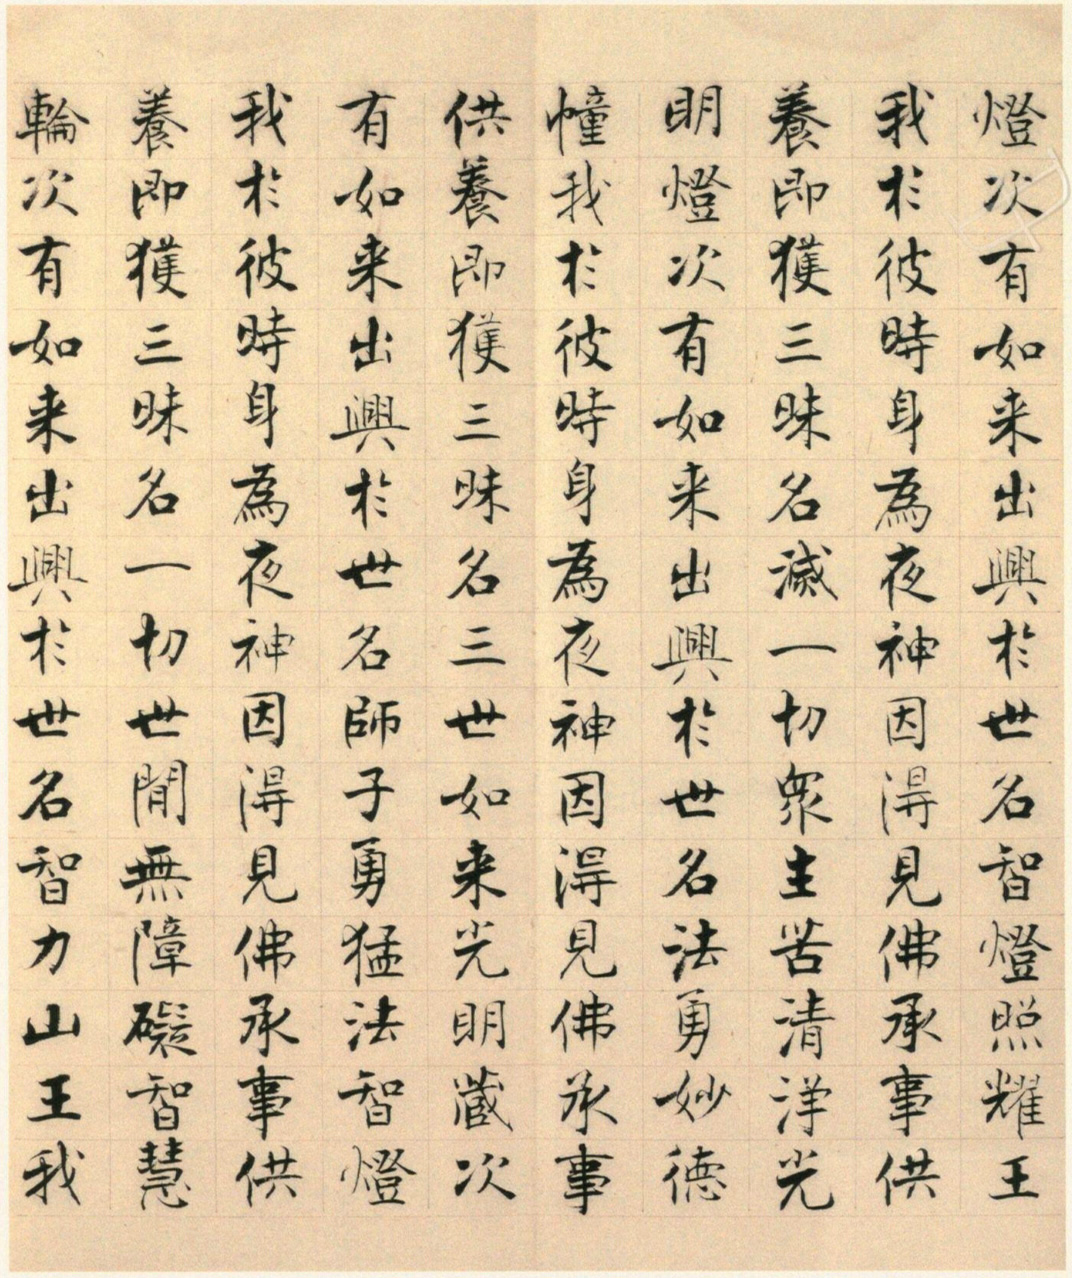 燈次有如来出興於世名智燈照耀王
我於彼時身為夜神因淂見佛承事供
養即獲三昧名滅一切衆生苦清淨光
明燈次有如来出興於世名法勇妙德
幢我於彼時身為夜神因淂見佛承事
供養即獲三昧名三世如来光明藏次
有如来出興於世名師子勇猛法智燈
我於彼時身為夜神因淂見佛承事供
養即獲三昧名一切世間無障礙智慧
輪次有如来出興於世名智力山王我